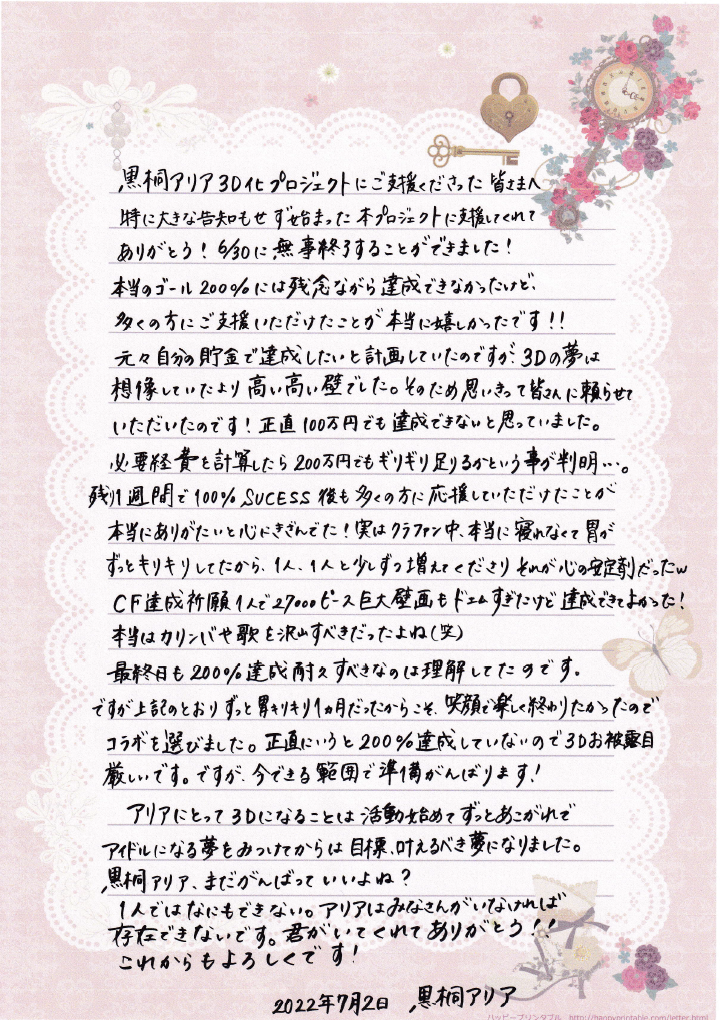 黒桐アリア3D化プロジェクトにご支援くださった皆さまへ
特に大きな告知もせず始まった本プロジェクトに支援してくれて
ありがとう！6/30に無事終了することができました！
本当のゴール200%には残念ながら達成できなかったけど、
多くの方にご支援いただけたことが本当に嬉しかったです！！
元々自分の貯金で達成したいと計画していたのですが、3Dの夢は
想像していたより高い高い壁でした。そのため思いきって皆さんに頼らせて
いただいたのです！正直100万円でも達成できないと思っていました。
必要経費を計算したら200万円でもギリギリ足りるかという事が判明…。
残り1週間で100% SUCESS後も多くの方に応援していただけたことが
本当にありがたいと心にきざんでた！実はクラファン中、本当に寝れなくて胃が
ずっとキリキリしてたから、1人、1人と少しずつ増えてくださり それが心の安定剤だったw
CF達成祈願1人で27000ピース巨大壁画もドエムすぎたけど達成できてよかった！
本当はカリンバや歌を沢山すべきだったよね(笑)
最終日も200%達成耐久すべきなのは理解してたのです。
ですが上記のとおりずっと胃キリキリ1ヵ月だったからこそ、笑顔で楽しく終わりたかったので
コラボを選びました。正直にいうと200%達成していないので3Dお披露目
厳しいです。ですが、今できる範囲で準備がんばります！
アリアにとって3Dになることは活動始めてずっとあこがれで
アイドルになる夢をみつけてからは目標、叶えるべき夢になりました。
黒桐アリア、まだがんばっていいよね？
1人ではなにもできない。アリアはみなさんがいなければ
存在できないです。君がいてくれてありがとう！！
これからもよろしくです！
2022年7月2日 黒桐アリア
ハッピープリンタブル http://happyprintable.com/letter.html